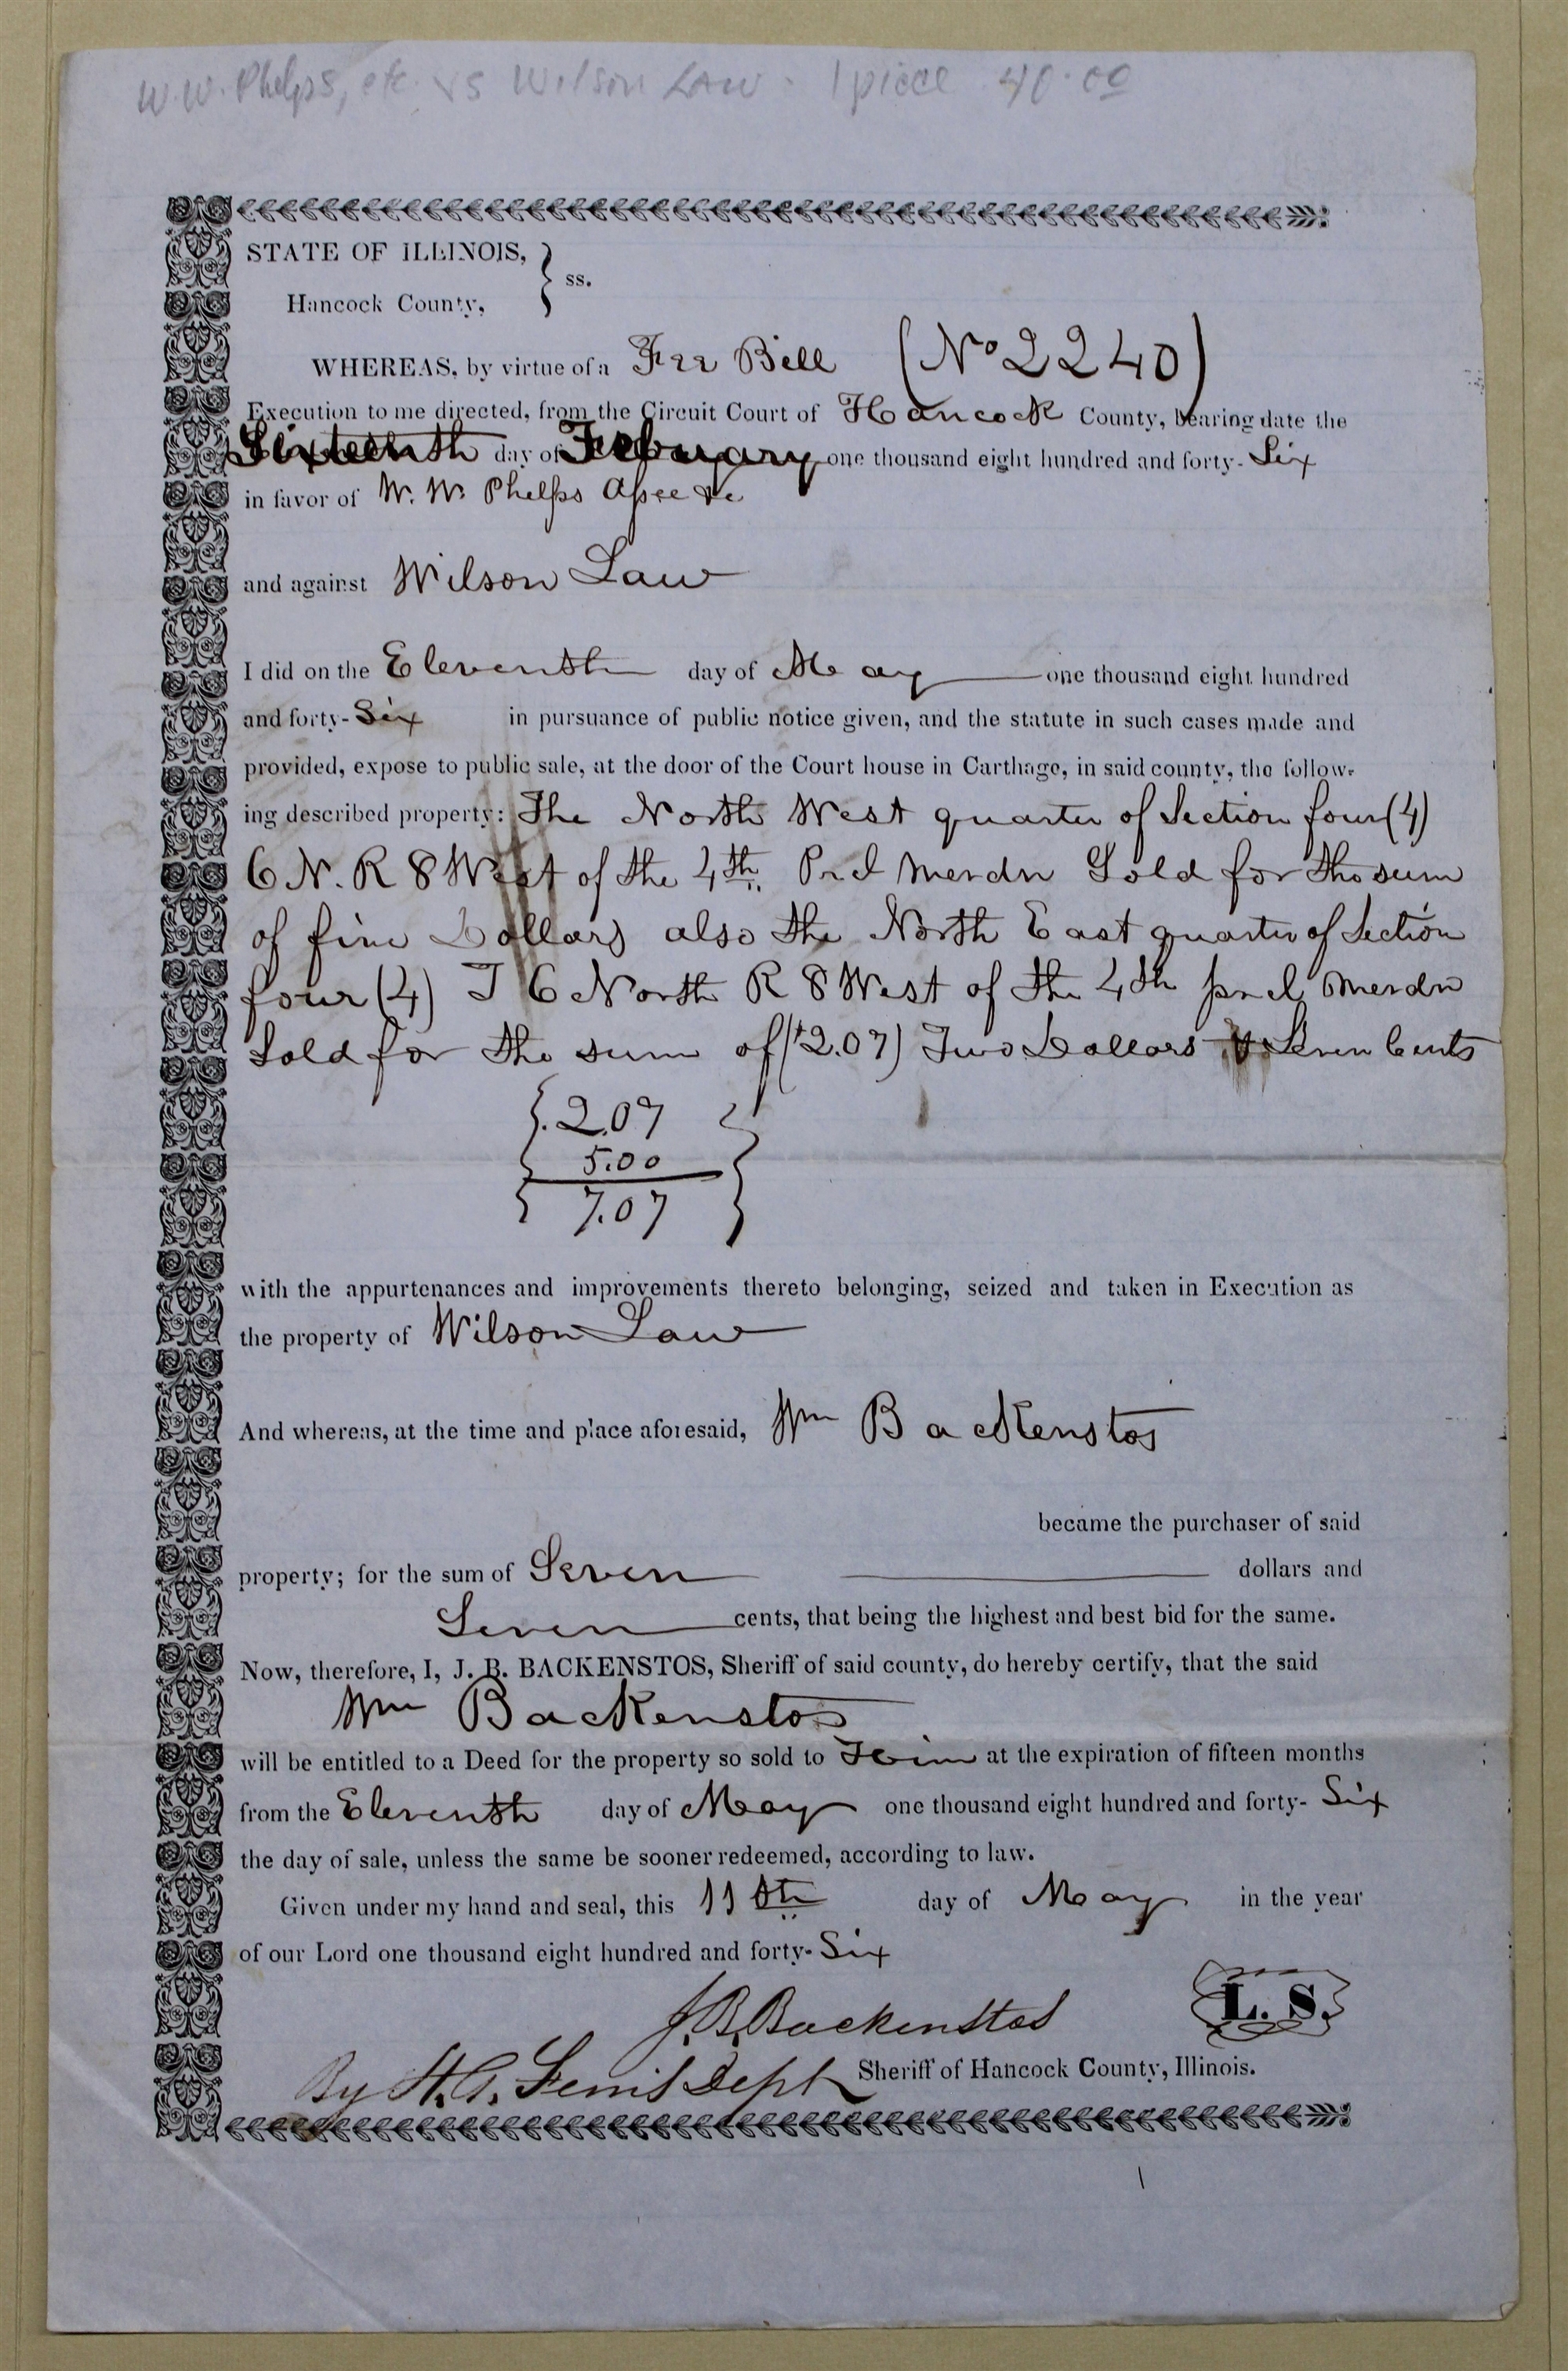 W. W. Phelps, etc. vs Wilson Law - 1 piece 40.00
STATE OF ILLINOIS, } ss.
Hancock County,
WHEREAS, by virtue of a Fee Bill (No 2240)
Execution to me directed, from the Circuit Court of Hancock County, bearing date the
Sixteenth day of February one thousand eight hundred and forty-Six
in favor of W. W. Phelps Assee &c
and against Wilson Law
I did on the Eleventh day of May one thousand eight hundred
and forty-Six in pursuance of public notice given, and the statute in such cases made and
provided, expose to public sale, at the door of the Court house in Carthage, in said county, the follow-
ing described property: The North West quarter of Section four (4)
6 N. R 8 West of the 4th Prcl Merdn Sold for the sum
of five Dollars also the North East quarter of Section
four (4) T 6 North R 8 West of the 4th prcl Merdn
Sold for the sum of ($2.07) Two Dollars & Seven Cents
{.2.07 }
5.00
7.07
with the appurtenances and improvements thereto belonging, seized and taken in Execution as
the property of Wilson Law
And whereas, at the time and place aforesaid, Wm Backenstos
became the purchaser of said
property; for the sum of Seven dollars and
Seven cents, that being the highest and best bid for the same.
Now, therefore, I, J. B. BACKENSTOS, Sheriff of said county, do hereby certify, that the said
Wm Backenstos
will be entitled to a Deed for the property so sold to Him at the expiration of fifteen months
from the Eleventh day of May one thousand eight hundred and forty-Six
the day of sale, unless the same be sooner redeemed, according to law.
Given under my hand and seal, this 11th day of May in the year
of our Lord one thousand eight hundred and forty-Six
J. B. Backenstos L. S.
Sheriff of Hancock County, Illinois.
By H. G. Ferris Dept